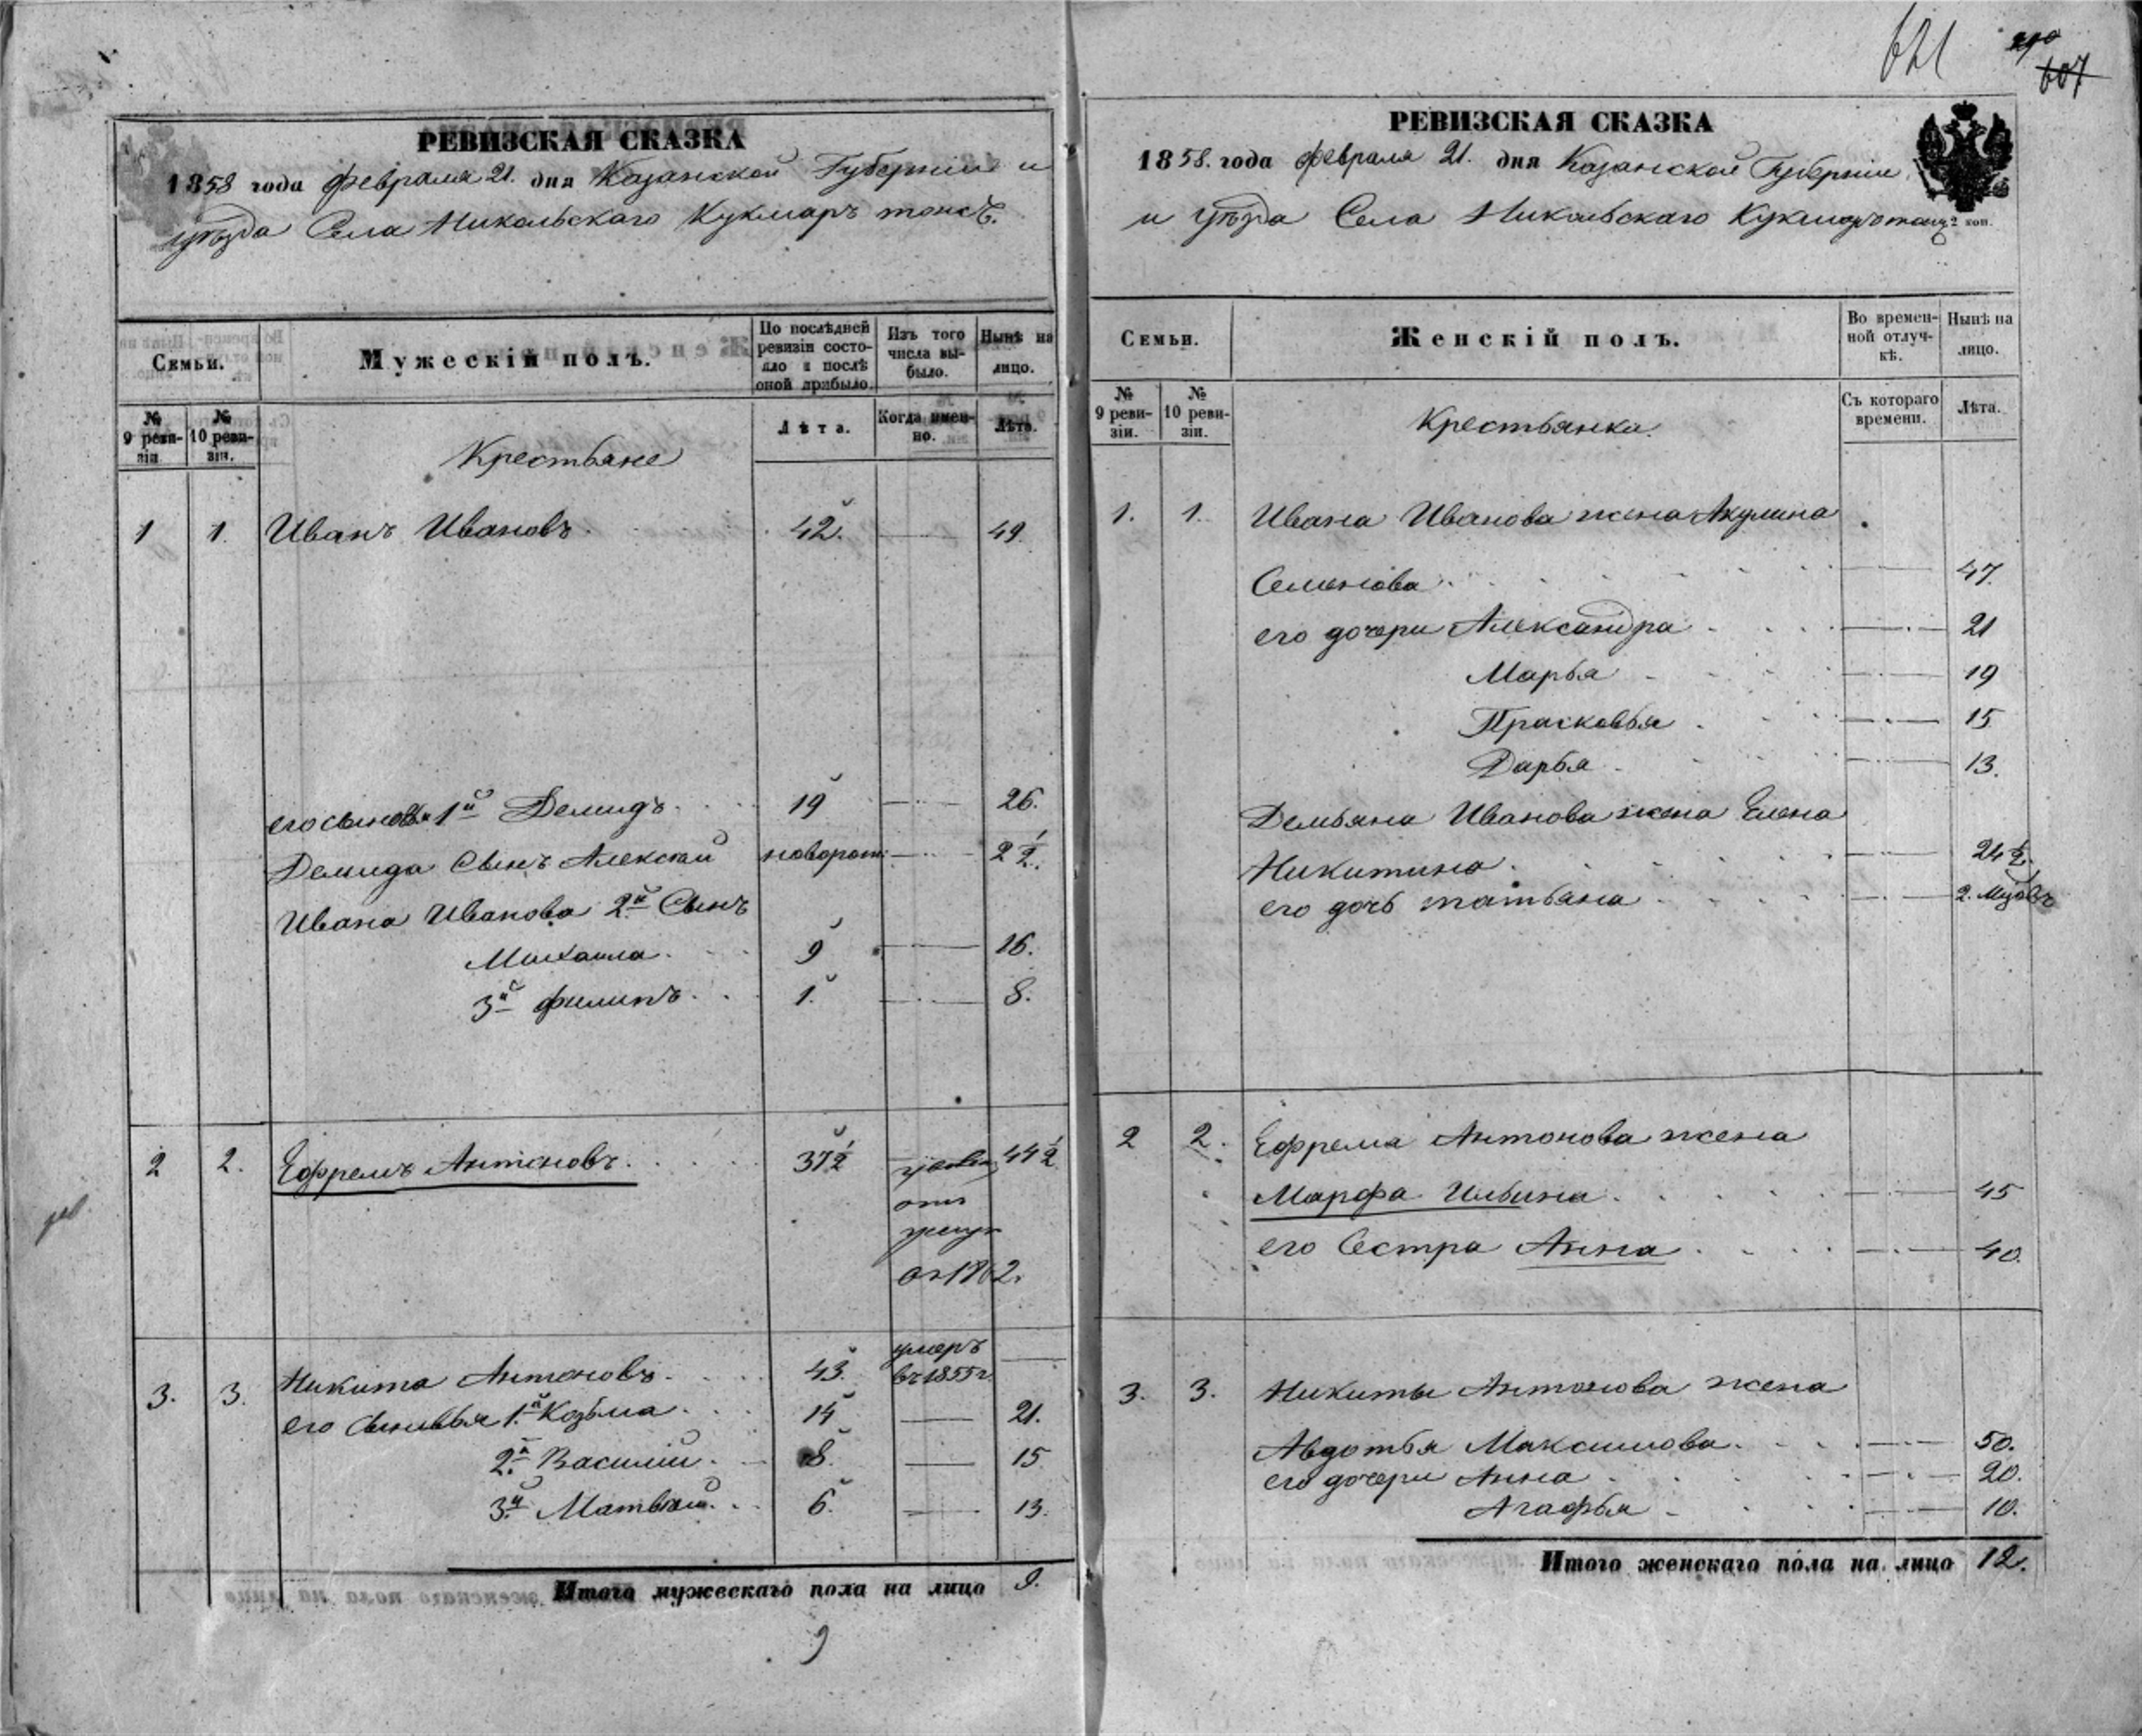 РЕВИЗСКАЯ СКАЗКА
1858 года февраля 21. дня Казанской Губерніи и
уѣзда Села Никольскаго Кукмаръ тожъ.
Семьи.
Мужескій полъ.
По послѣдней ревизіи состояло и послѣ оной прибыло.
Изъ того числа выбыло.
Нынѣ на лицо.
№ 9 ревизіи.
№ 10 ревизіи.
Лѣта.
Когда именно.
Лѣта.
Крестьяне
1 1. Иванъ Ивановъ. 42. 49
его сыновья 1й Демидъ. 19 26.
Демида Сынъ Алексей новорож. 2 1/2.
Ивана Иванова 2й Сынъ
Михаила. 9 16.
3й Филипъ. 1. 8.
2 2. Ефремъ Антоновъ. 37 1/2 44 1/2
3. 3. Никита Антоновъ. 43. умеръ въ 1855 г.
его Сыновья 1.й Козьма. 14 21.
2.й Василій. 8. 15
3.й Матвѣй. 6. 13.
Итого мужескаго пола на лицо 9.
9
621
607
РЕВИЗСКАЯ СКАЗКА
1858. года февраля 21. дня Казанской Губерніи
и уѣзда Села Никольскаго Кукморъ тожъ
2 коп.
Семьи.
Женскій полъ.
Во временной отлучкѣ.
Нынѣ на лицо.
№ 9 ревизіи.
№ 10 ревизіи.
Съ котораго времени.
Лѣта.
Крестьянки.
1. 1. Ивана Иванова жена Акулина
Семенова. 47.
его дочери Александра 21
Марья 19
Прасковья 15
Дарья 13.
Демьяна Иванова жена Елена
Никитина. 24 1/2.
его дочь татьяна 2. Мцовъ
2 2. Ефрема Антонова жена
Марфа Ильина 45
его Сестра Анна 40.
3. 3. Никиты Антонова жена
Авдотья Максимова. 50.
его дочери Анна 20.
Агафья 10.
Итого женскаго пола на лицо 12.